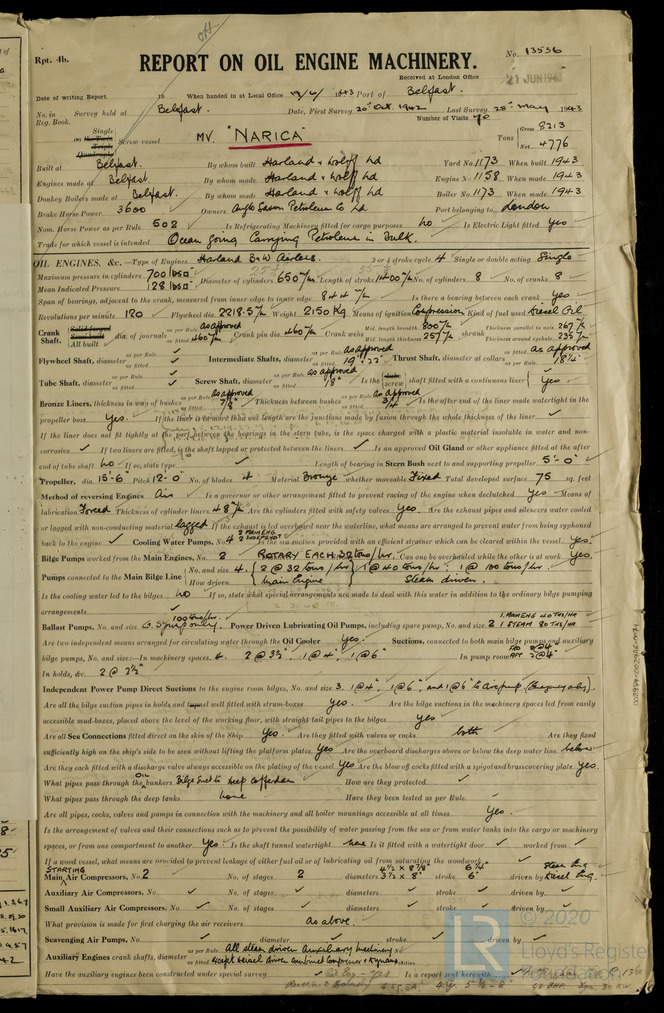 Rpt. 4b.
REPORT ON OIL ENGINE MACHINERY.
No. 13536
Received at London Office
21 JUN 1943
Date of writing Report 19 When handed in at Local Office 1943 Port of Belfast.
No. in Reg. Book. Survey held at Belfast. Date, First Survey 20th Oct. 1942 Last Survey 28th May 1943
Number of Visits 70
Single
on the Twin
Triple
Quadruple
Screw vessel MV. "NARICA"
Tons Gross 8213
Net 4776
Built at Belfast. By whom built Harland & Wolff Ltd Yard No. 1173 When built 1943
Engines made at Belfast. By whom made Harland & Wolff Ltd Engine No. 1158 When made 1943
Donkey Boilers made at Belfast. By whom made Harland & Wolff Ltd Boiler No. 1173 When made 1943
Brake Horse Power 3600 Owners Anglo Saxon Petroleum Co Ltd Port belonging to London
Nom. Horse Power as per Rule 502 Is Refrigerating Machinery fitted for cargo purposes No Is Electric Light fitted Yes
Trade for which vessel is intended Ocean going Carrying Petroleum in Bulk.
OIL ENGINES, &c.—Type of Engines Harland B&W Airless 2 or 4 stroke cycle 4 Single or double acting Single
Maximum pressure in cylinders 700 lbs Diameter of cylinders 650 m/m Length of stroke 1400 m/m No. of cylinders 8 No. of cranks 8
Mean Indicated Pressure 128 lbs
Span of bearings, adjacent to the crank, measured from inner edge to inner edge 844 m/m Is there a bearing between each crank Yes
Revolutions per minute 120 Flywheel dia. 2218.5 m/m Weight 2150 Kg Means of ignition Compression Kind of fuel used Diesel Oil
Crank Shaft, Solid forged Semi built All built dia. of journals as per Rule as approved as fitted 460 m/m Crank pin dia. 460 m/m Crank webs Mid. length breadth 800 m/m Mid. length thickness 257 m/m shrunk Thickness parallel to axis 267 m/m Thickness around eyehole 235 m/m
Flywheel Shaft, diameter as per Rule as fitted Intermediate Shafts, diameter as per Rule as approved as fitted Thrust Shaft, diameter at collars as per Rule as approved as fitted 18¼"
Tube Shaft, diameter as per Rule as fitted Screw Shaft, diameter as per Rule as approved as fitted Is the tube screw shaft fitted with a continuous liner Yes
Bronze Liners, thickness in way of bushes as per Rule as approved as fitted 7/8" Thickness between bushes as per Rule as approved as fitted 3/4" Is the after end of the liner made watertight in the
propeller boss Yes. If the liner is in more than one length are the junctions made by fusion through the whole thickness of the liner
If the liner does not fit tightly at the part between the bearings in the stern tube, is the space charged with a plastic material insoluble in water and non-
corrosive If two liners are fitted, is the shaft lapped or protected between the liners Is an approved Oil Gland or other appliance fitted at the after
end of tube shaft No If so, state type Length of bearing in Stern Bush next to and supporting propeller 5'-0"
Propeller, dia. 15'-6" Pitch 12'-0" No. of blades 4 Material Bronze whether moveable Fixed Total developed surface 75 sq. feet
Method of reversing Engines Air Is a governor or other arrangement fitted to prevent racing of the engine when declutched Yes Means of
lubrication Forced Thickness of cylinder liners 48 m/m Are the cylinders fitted with safety valves Yes. Are the exhaust pipes and silencers water cooled
or lagged with non-conducting material lagged If the exhaust is led overboard near the waterline, what means are arranged to prevent water from being syphoned
back to the engine Cooling Water Pumps, No. 4 2 MAIN ENG 2 INDEPENDT Is the sea suction provided with an efficient strainer which can be cleared within the vessel Yes.
Bilge Pumps worked from the Main Engines, No. 2 ROTARY EACH 32 tons/hr. Can one be overhauled while the other is at work Yes.
Pumps connected to the Main Bilge Line No. and size 4. 2 @ 32 tons/hr 1 @ 40 tons/hr. 1 @ 100 tons/hr.
How driven Main Engine Steam driven.
Is the cooling water led to the bilges No If so, state what special arrangements are made to deal with this water in addition to the ordinary bilge pumping
arrangements
Ballast Pumps, No. and size 100 tons/hr. Power Driven Lubricating Oil Pumps, including spare pump, No. and size 2 1 MAIN ENG 40 TNS/HR 1 STEAM 30 TNS/HR
Are two independent means arranged for circulating water through the Oil Cooler Yes. Suctions, connected to both main bilge pumps and auxiliary
bilge pumps, No. and size:—In machinery spaces 4. 2 @ 3½". 1 @ 4". 1 @ 6" In pump room
In holds, &c. 2 @ 2½"
Independent Power Pump Direct Suctions to the engine room bilges, No. and size 3. 1 @ 4", 1 @ 6", and 1 @ 6"
Are all the bilge suction pipes in holds and tunnel well fitted with strum-boxes Yes. Are the bilge suctions in the machinery spaces led from easily
accessible mud-boxes, placed above the level of the working floor, with straight tail pipes to the bilges Yes
Are all Sea Connections fitted direct on the skin of the Ship Yes. Are they fitted with valves or cocks both Are they fixed
sufficiently high on the ship's side to be seen without lifting the platform plates Yes Are the overboard discharges above or below the deep water line below
Are they each fitted with a discharge valve always accessible on the plating of the vessel Yes Are the blow off cocks fitted with a spigot and brass covering plate Yes.
What pipes pass through the oil bunkers Bilge Suct to deep cofferdam How are they protected.
What pipes pass through the deep tanks none Have they been tested as per Rule.
Are all pipes, cocks, valves and pumps in connection with the machinery and all boiler mountings accessible at all times Yes.
Is the arrangement of valves and their connections such as to prevent the possibility of water passing from the sea or from water tanks into the cargo or machinery
spaces, or from one compartment to another Yes. Is the shaft tunnel watertight none Is it fitted with a watertight door worked from
If a wood vessel, what means are provided to prevent leakage of either fuel oil or of lubricating oil from saturating the woodwork
STARTING
Main Air Compressors, No. 2 No. of stages 2 diameters 3½ x 8" stroke 6" driven by Steam Eng Diesel Eng.
Auxiliary Air Compressors, No. No. of stages diameters stroke driven by
Small Auxiliary Air Compressors, No. No. of stages diameters stroke driven by
What provision is made for first charging the air receivers as above
Scavenging Air Pumps, No. diameter stroke driven by
Auxiliary Engines crank shafts, diameter as per Rule as fitted All steam driven Auxiliary Machinery
except diesel driven combined compressor & dynamo
Have the auxiliary engines been constructed under special survey Yes Is a report sent herewith
© 2020
LR
Lloyd's Register
Foundation